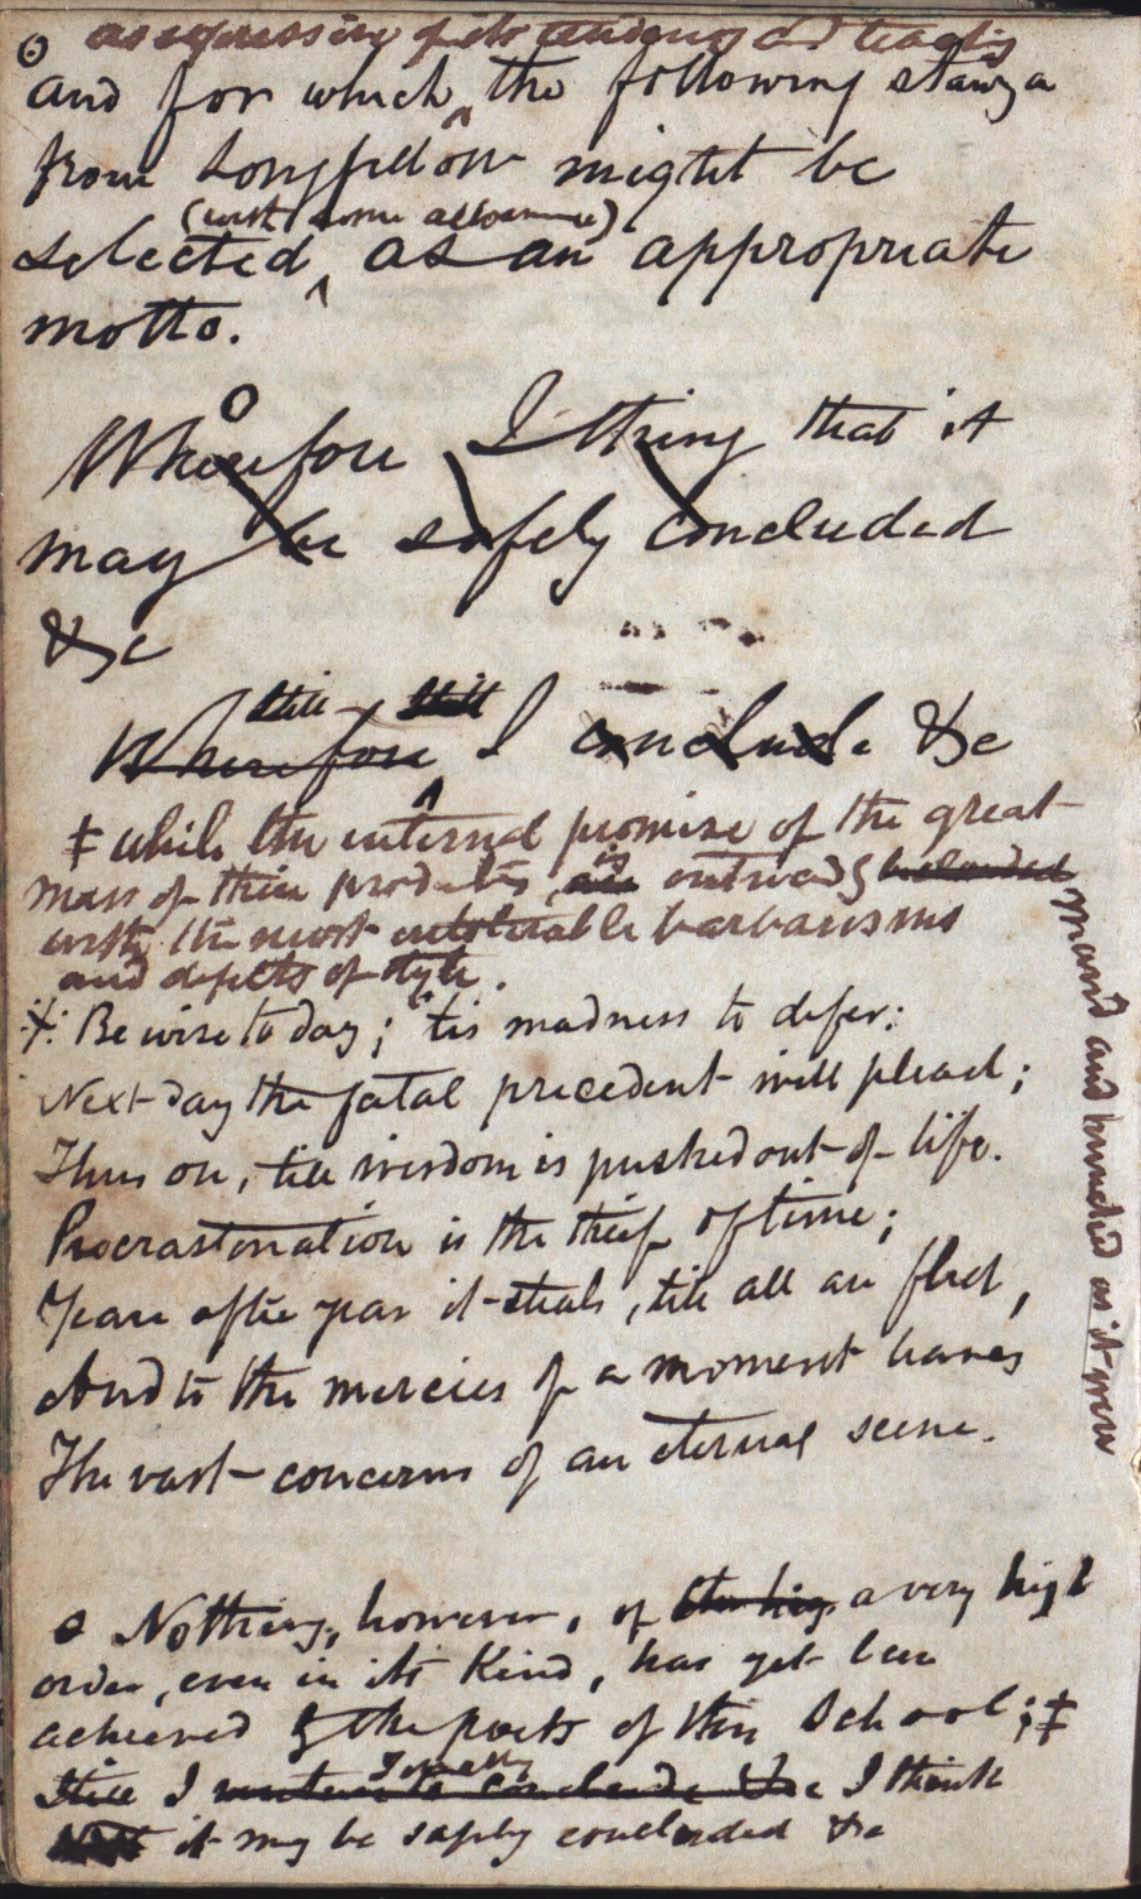 as expressive of its tendency and teaching
and for which ^ the following stanza
from Longfellow might be
(with some allowance)
selected ^ as an appropriate
motto.
Wherefore, I thing that it
may be safely concluded
&c
still still
Wherefore ^ I conclude &c
‡ while the internal promise of the great
mass of their products is outwardly beclouded
with the most intolerable barbarisms
and defects of style.
marr'd and as it were
Be wise to day; 'tis madness to defer:
Next day the fatal precedent will plead;
Thus on, till wisdom is pushed out of life.
Procrastination is the thief of time;
Year after year it steals, till all are fled,
And to the mercies of a moment leaves
The vast concerns of an eternal scene.
o Nothing, however, of a very high
order, even in its kind, has yet been
achieved by the poets of this School; ‡
still I venture to conclude &c I think
it may be safely concluded &c